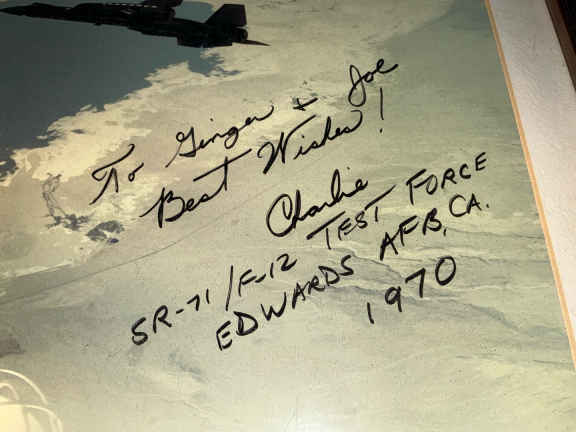 To Ginger & Joe
Best Wishes!
Charlie
SR-71/F-12 TEST FORCE
EDWARDS AFB, CA.
1970